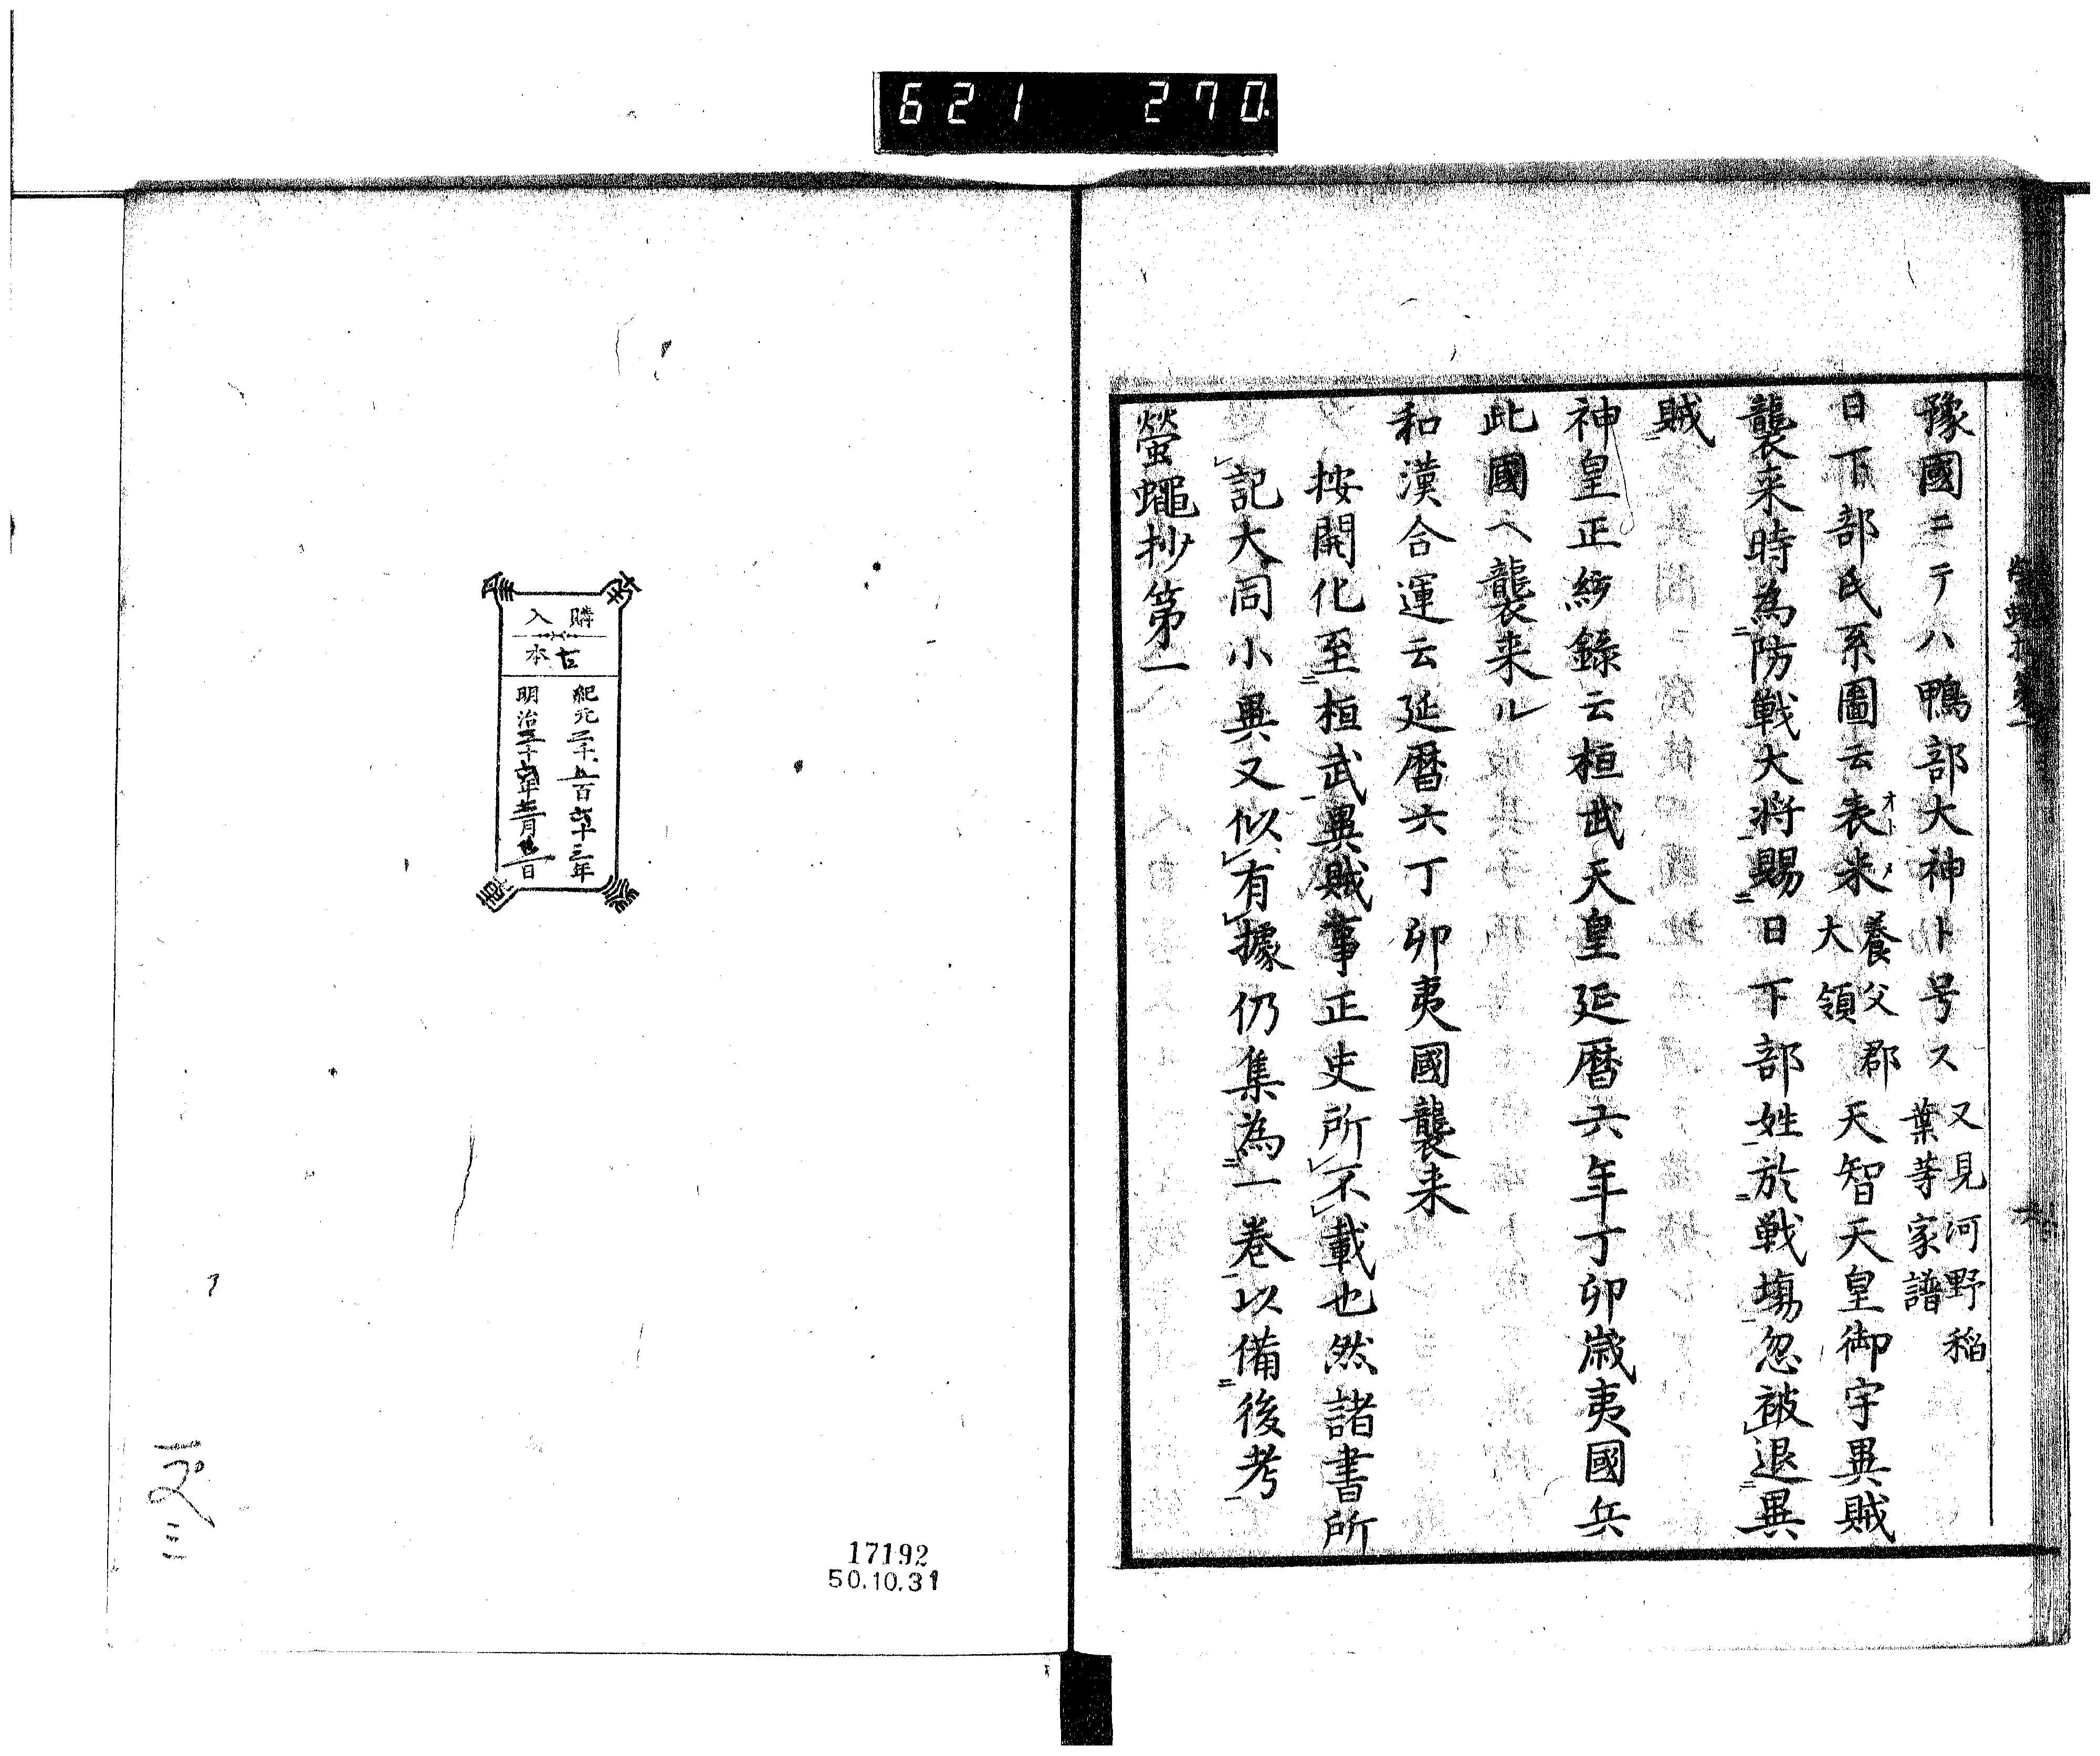 621 270
豫國ニテハ鴨部大神ト号ス又見河野稲
葉等家譜
日下部氏系圖云表米養父郡
大領天智天皇御宇異賊
襲来時為防戦大将賜日下部姓於戦場忽被退異
賊
神皇正統録云桓武天皇延暦六年丁卯歳夷國兵
此國ヘ襲来ル
和漢合運云延暦六丁卯夷國襲来
按開化至桓武異賊事正史所不載也然諸書所
記大同小異又似有據仍集為一巻以備後考
螢蠅抄第一
購入
古本
紀元二千五百六十三年
明治三十六年
月
日
17192
50.10.31